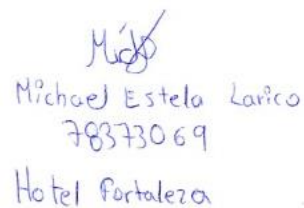 Michael Estela Larico
78373069
Hotel Fortaleza